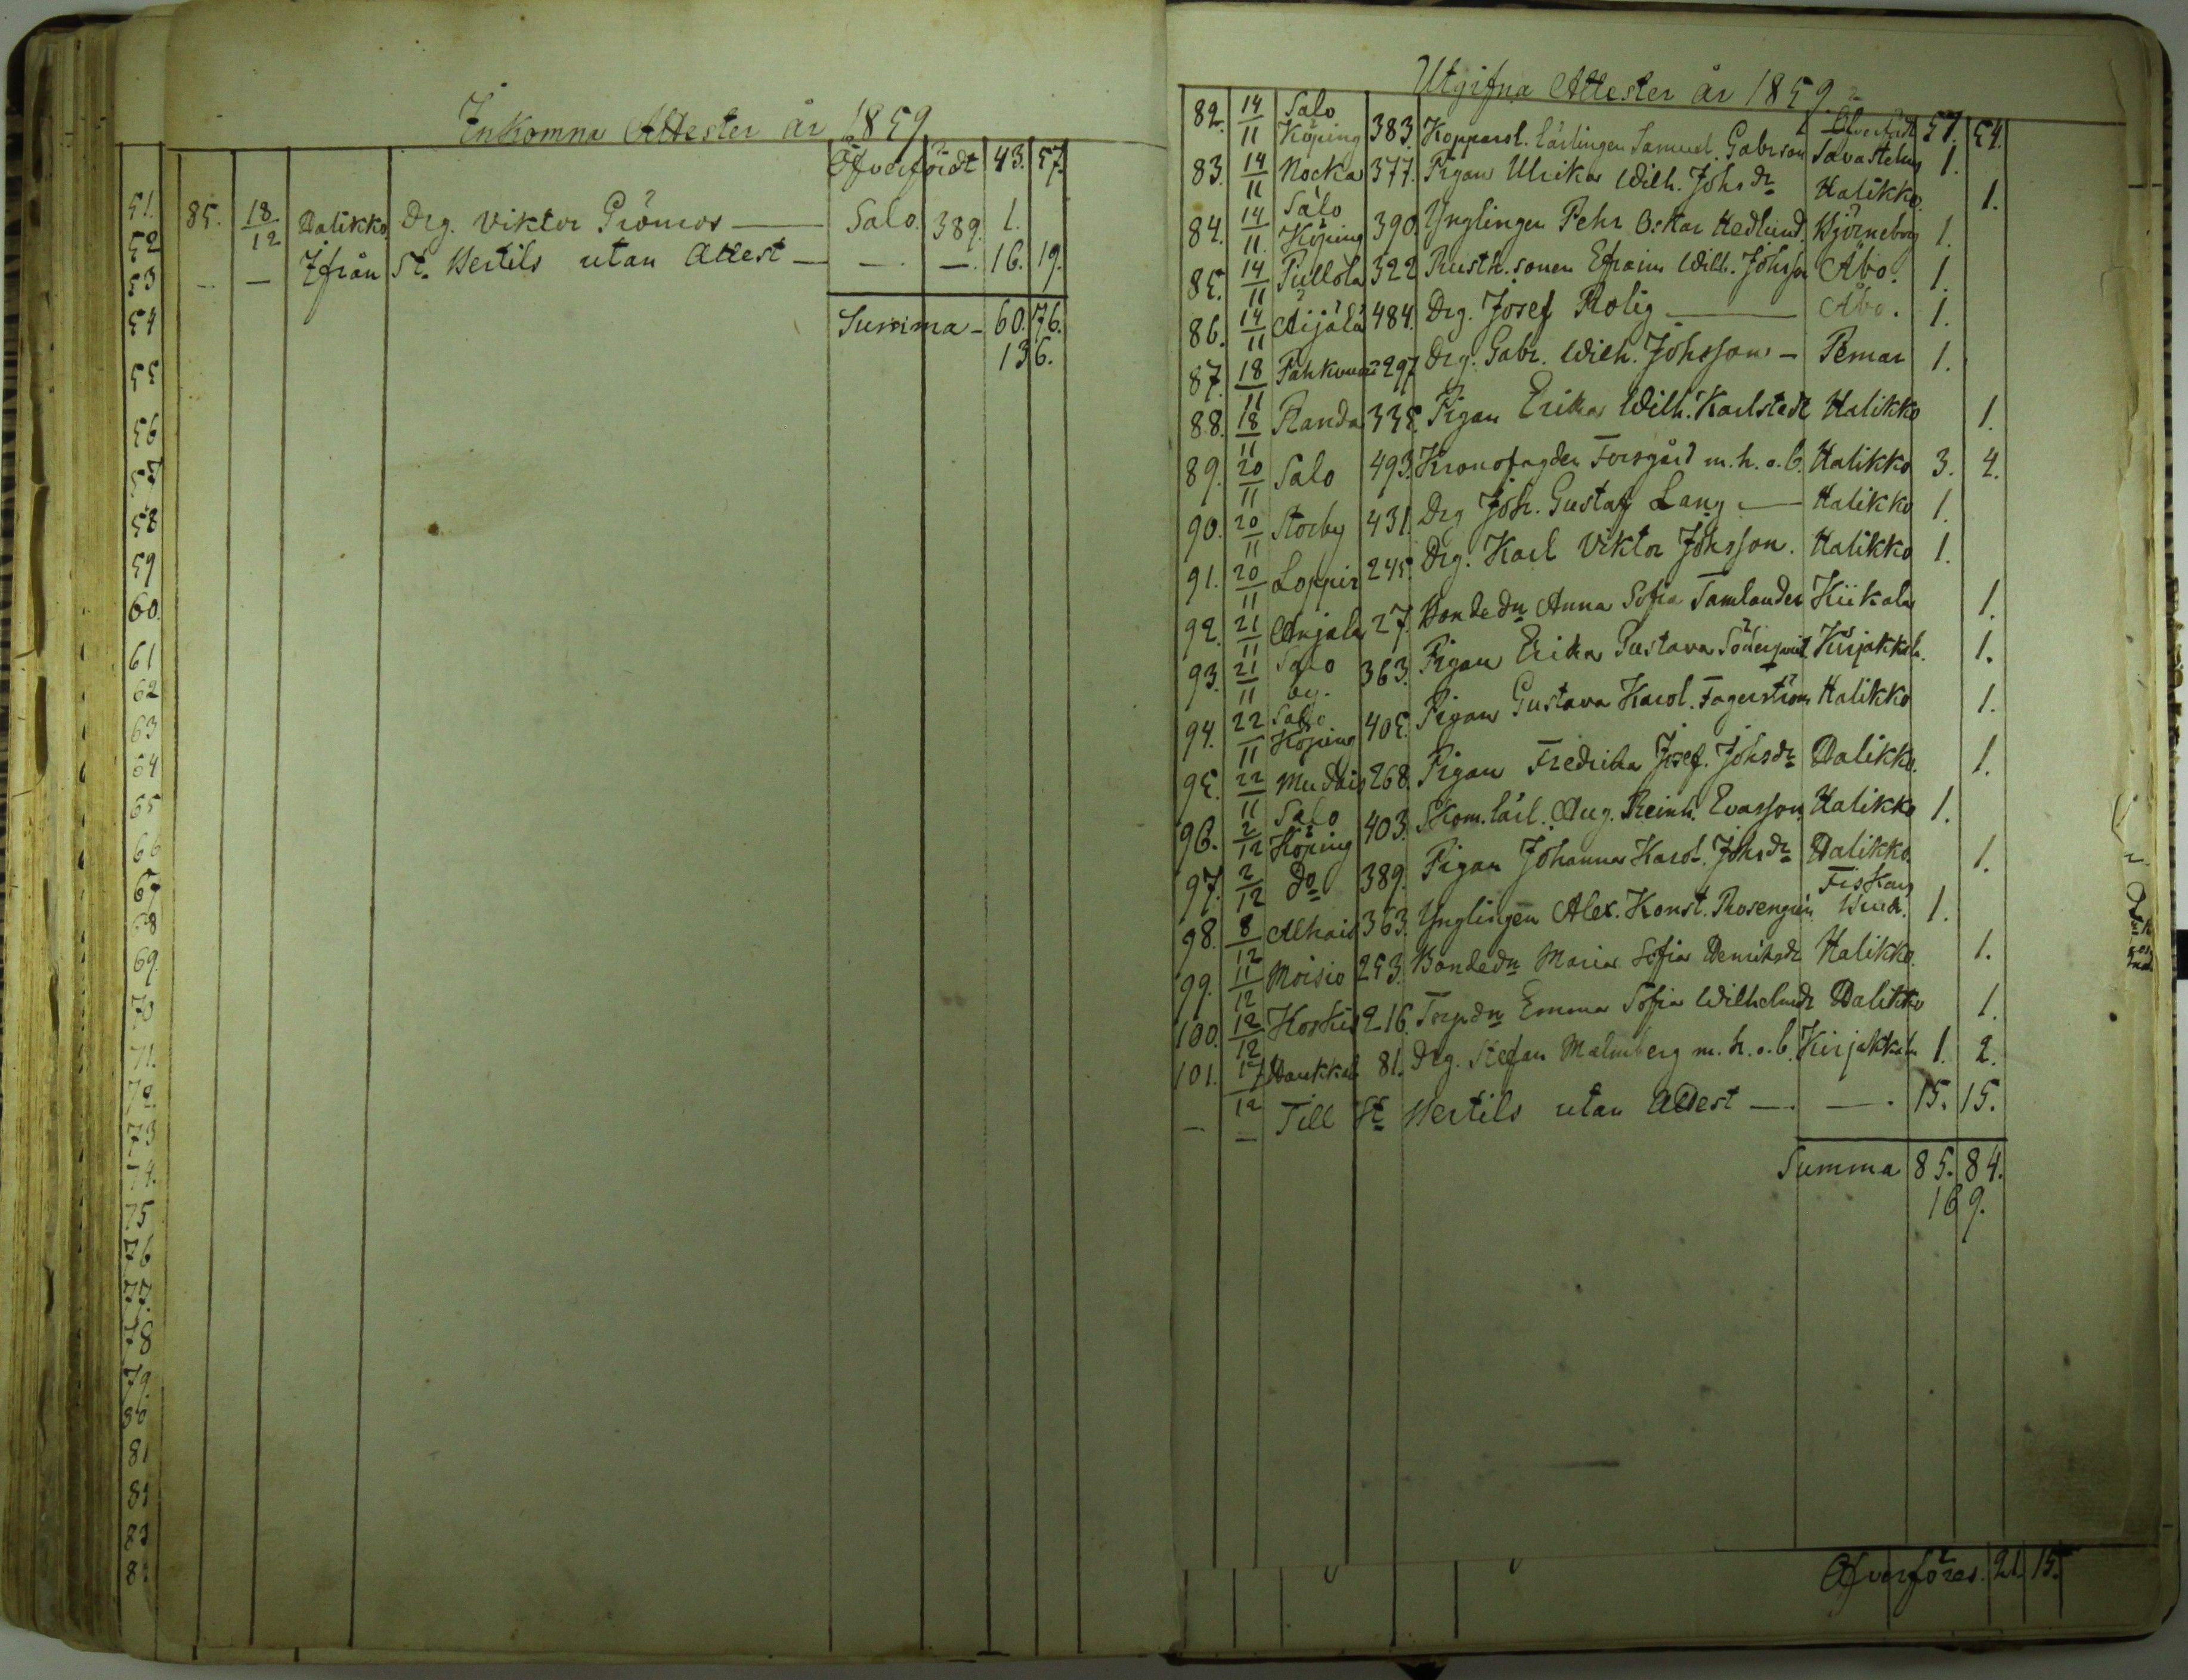 Inkomna Attester år 1859
Öfverfördt 43. 57.
85. 18/12 Halikko Drg. Viktor Grönros — Salo. 389. 1.
— — Ifrån St. Bertils utan Attest — — . — . 16. 19.
Summa - 60. 76.
136.
51.
52
53
54
55
56
57
58
59
60.
61
62
63
64
65
66
67
68
69.
70
71.
72.
73
74.
75
76
77.
78
79.
80
81
Utgifna Attester år 1859
Öfverfördt 57. 54.
82. 14/11 Salo Köping 383. Kopparsl. lärlingen Samuel Gabrsson Tavastehus 1.
83. 14/11 Nocka 377. Pigan Ulrika Wilh. Johsdr Halikko. 1.
84. 14/11 Salo Köping 390. Ynglingen Pehr Oskar Hedlund. Björneborg 1.
85. 14/11 Pullola 322 Rusth. sonen Efraim Wilh. Johsson Åbo. 1.
86. 14/11 Äijälä 484. Drg. Josef Rolig — Åbo. 1.
87. 18/11 297 Drg. Gabr. Wilh. Johsson - Pemar 1.
88. 18/11 Randa 338. Pigan Erika Wilh. Karlstedt Halikko 1.
89. 20/11 Salo 493. Kronofogden Forsgård m. h. o. b. Halikko 3. 4.
90. 20/11 Storby 431. Drg Joh. Gustaf Lang — Halikko 1.
91. 20/11 Loppis 245. Drg. Karl Viktor Johsson. Halikko 1.
92. 21/11 Anjala 27. Bondedn Anna Sofia Tamlander Kiikala 1.
93. 21/11 Salo by. 363. Pigan Erika Gustava Söderqvist Kirjakkala. 1.
94. 22/11 Salo Köping 405. Pigan Gustava Karol. Fagerström Halikko 1.
95. 22/11 Mudais 268. Pigan Fredrika Josef. Johsdr Halikko. 1.
96. 2/12 Salo Köping 403. Skom. lärl. Aug. Reinh. Evasson Halikko 1.
97. 2/12 Do 389. Pigan Johanna Karol. Johsdr Halikko. 1.
98. 8/12 Alhais 363. Ynglingen Alex. Konst. Rosengrén Fiskars Bruk. 1.
99. 11/12 Moisio 253. Bondedn Maria Sofia Henriksdr Halikko. 1.
100. 12/12 Koskis 216. Torpdn Emma Sofia Wilhelmsdr Halikko 1.
101. 17/12 Haukkal. 81. Drg. Stefan Malmberg m. h. o. b. Kirjakkala 1. 2.
— — Till St Bertils utan Attest — . — . 15. 15.
Summa 85. 84.
169.
Öfverföres. 21. 15.